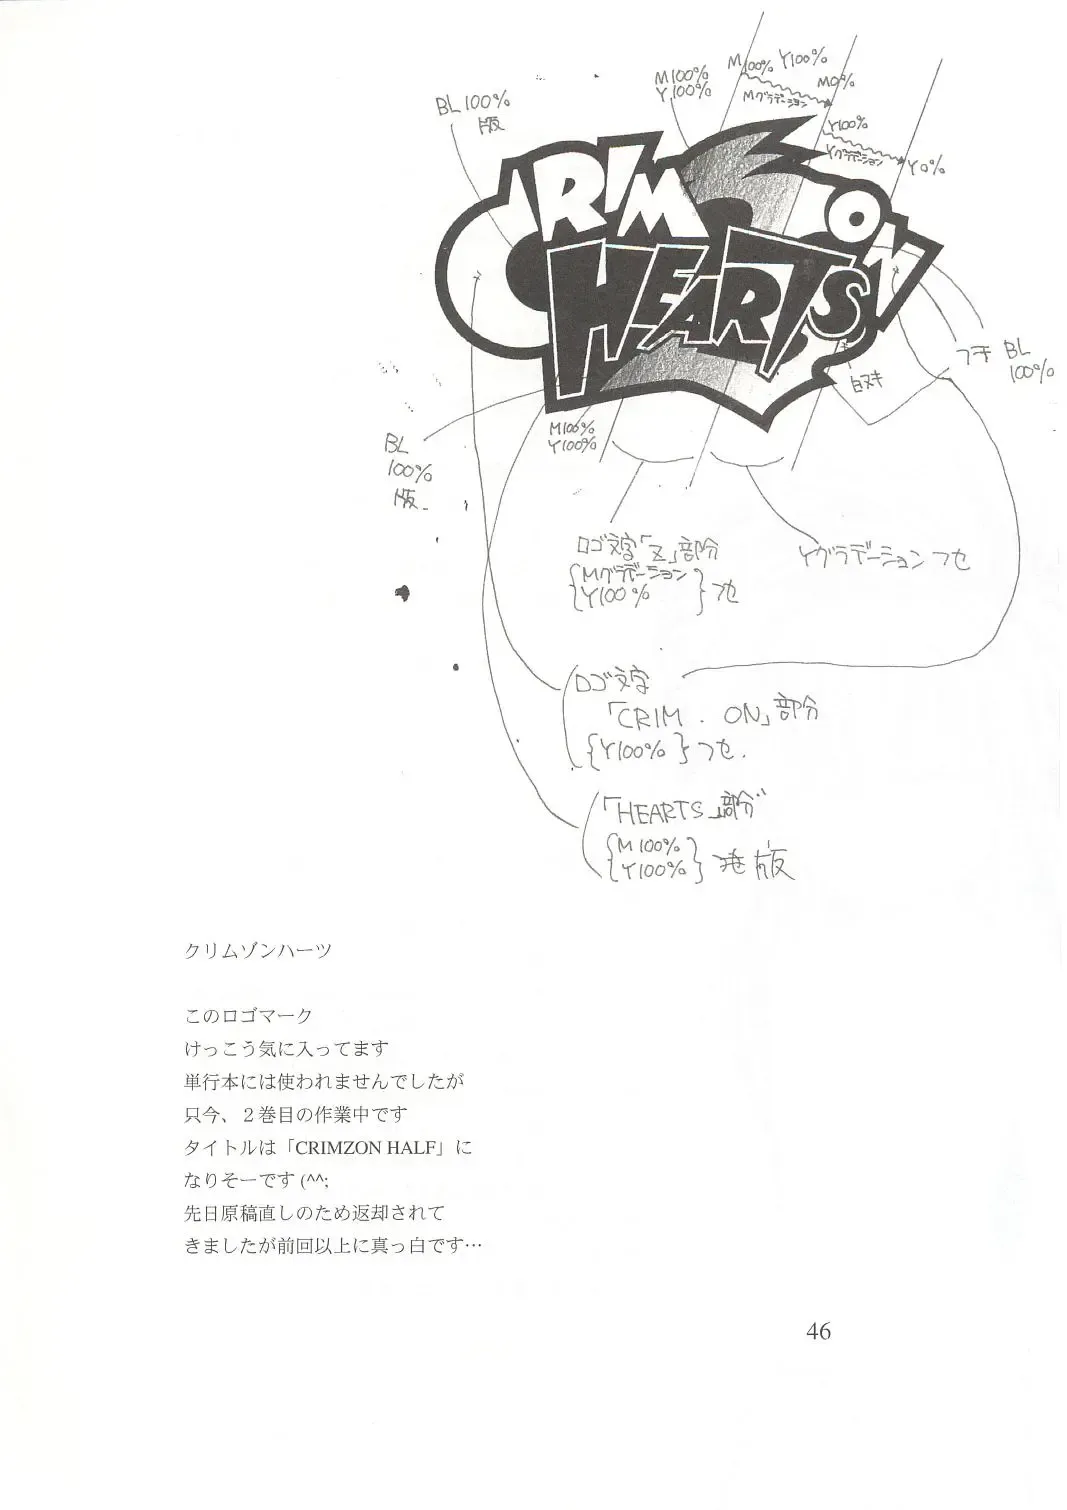 BL 100%
版
M100%
Y100%
M100% Y100%
Mグラデーション
M0%
Y100%
Yグラデーション
Y0%
CRIMZON
HEARTS
フチ BL
100%
白ヌキ
BL
100%
版
M100%
Y100%
ロゴ文字「Z」部分
Mグラデーション
Y100%
フセ
Yグラデーション フセ
ロゴ文字
「CRIM . ON」部分
{Y100%} フセ.
「HEARTS」部分
M100%
Y100%
版
クリムゾンハーツ
このロゴマーク
けっこう気に入ってます
単行本には使われませんでしたが
只今、２巻目の作業中です
タイトルは「CRIMZON HALF」に
なりそーです (^^;
先日原稿直しのため返却されて
きましたが前回以上に真っ白です…
46